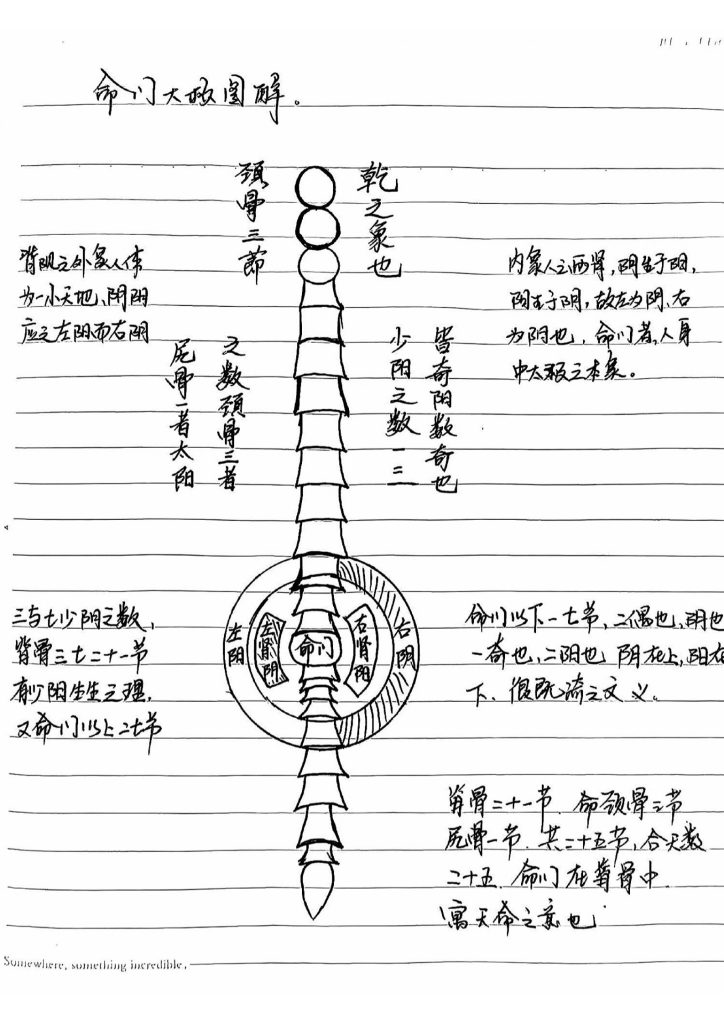 命门太极图解。
乾之象也
颈骨三節
背阳之外象人体
为一小天地、阴阳
应之左阳而右阴
内象人之两肾,阴生于阳,
阳生于阴,故左为阴、右
为阳也,命门者,人身
中太极之本象。
皆奇阳数奇也
少阳之数一三
之数颈骨三者
尻骨一者太阳
三与七少阳之数、
背骨三七二十一节
有少阳生生之理,
又命门以上二七节
左阳
左肾阴
命门
右肾阳
右阴
命门以下一七节,二偶也,阴也
一奇也,二阳也 阴在上,阳在
下、
之文义。
脊骨二十一节
颈骨三节
尻骨一节、共二十五节,合天数
二十五、命门在脊骨中
寓天命之意也
Somewhere, something incredible,